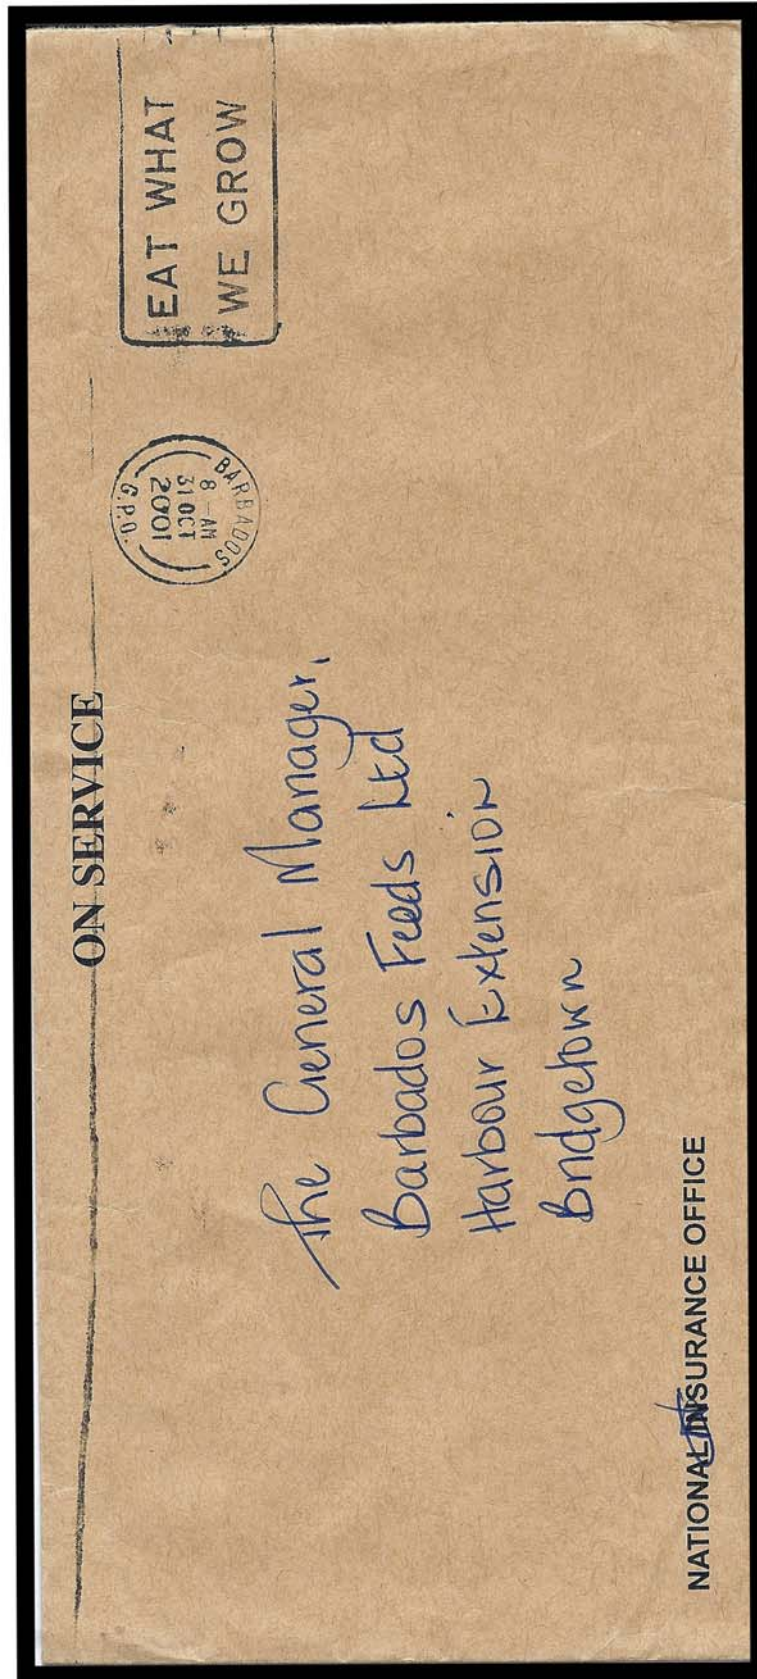 ON SERVICE
BARBADOS
8 - AM
31 OCT
2001
G.P.O.
EAT WHAT
WE GROW
The General Manager,
Barbados Feeds Ltd
Harbour Extension
Bridgetown
NATIONAL INSURANCE OFFICE